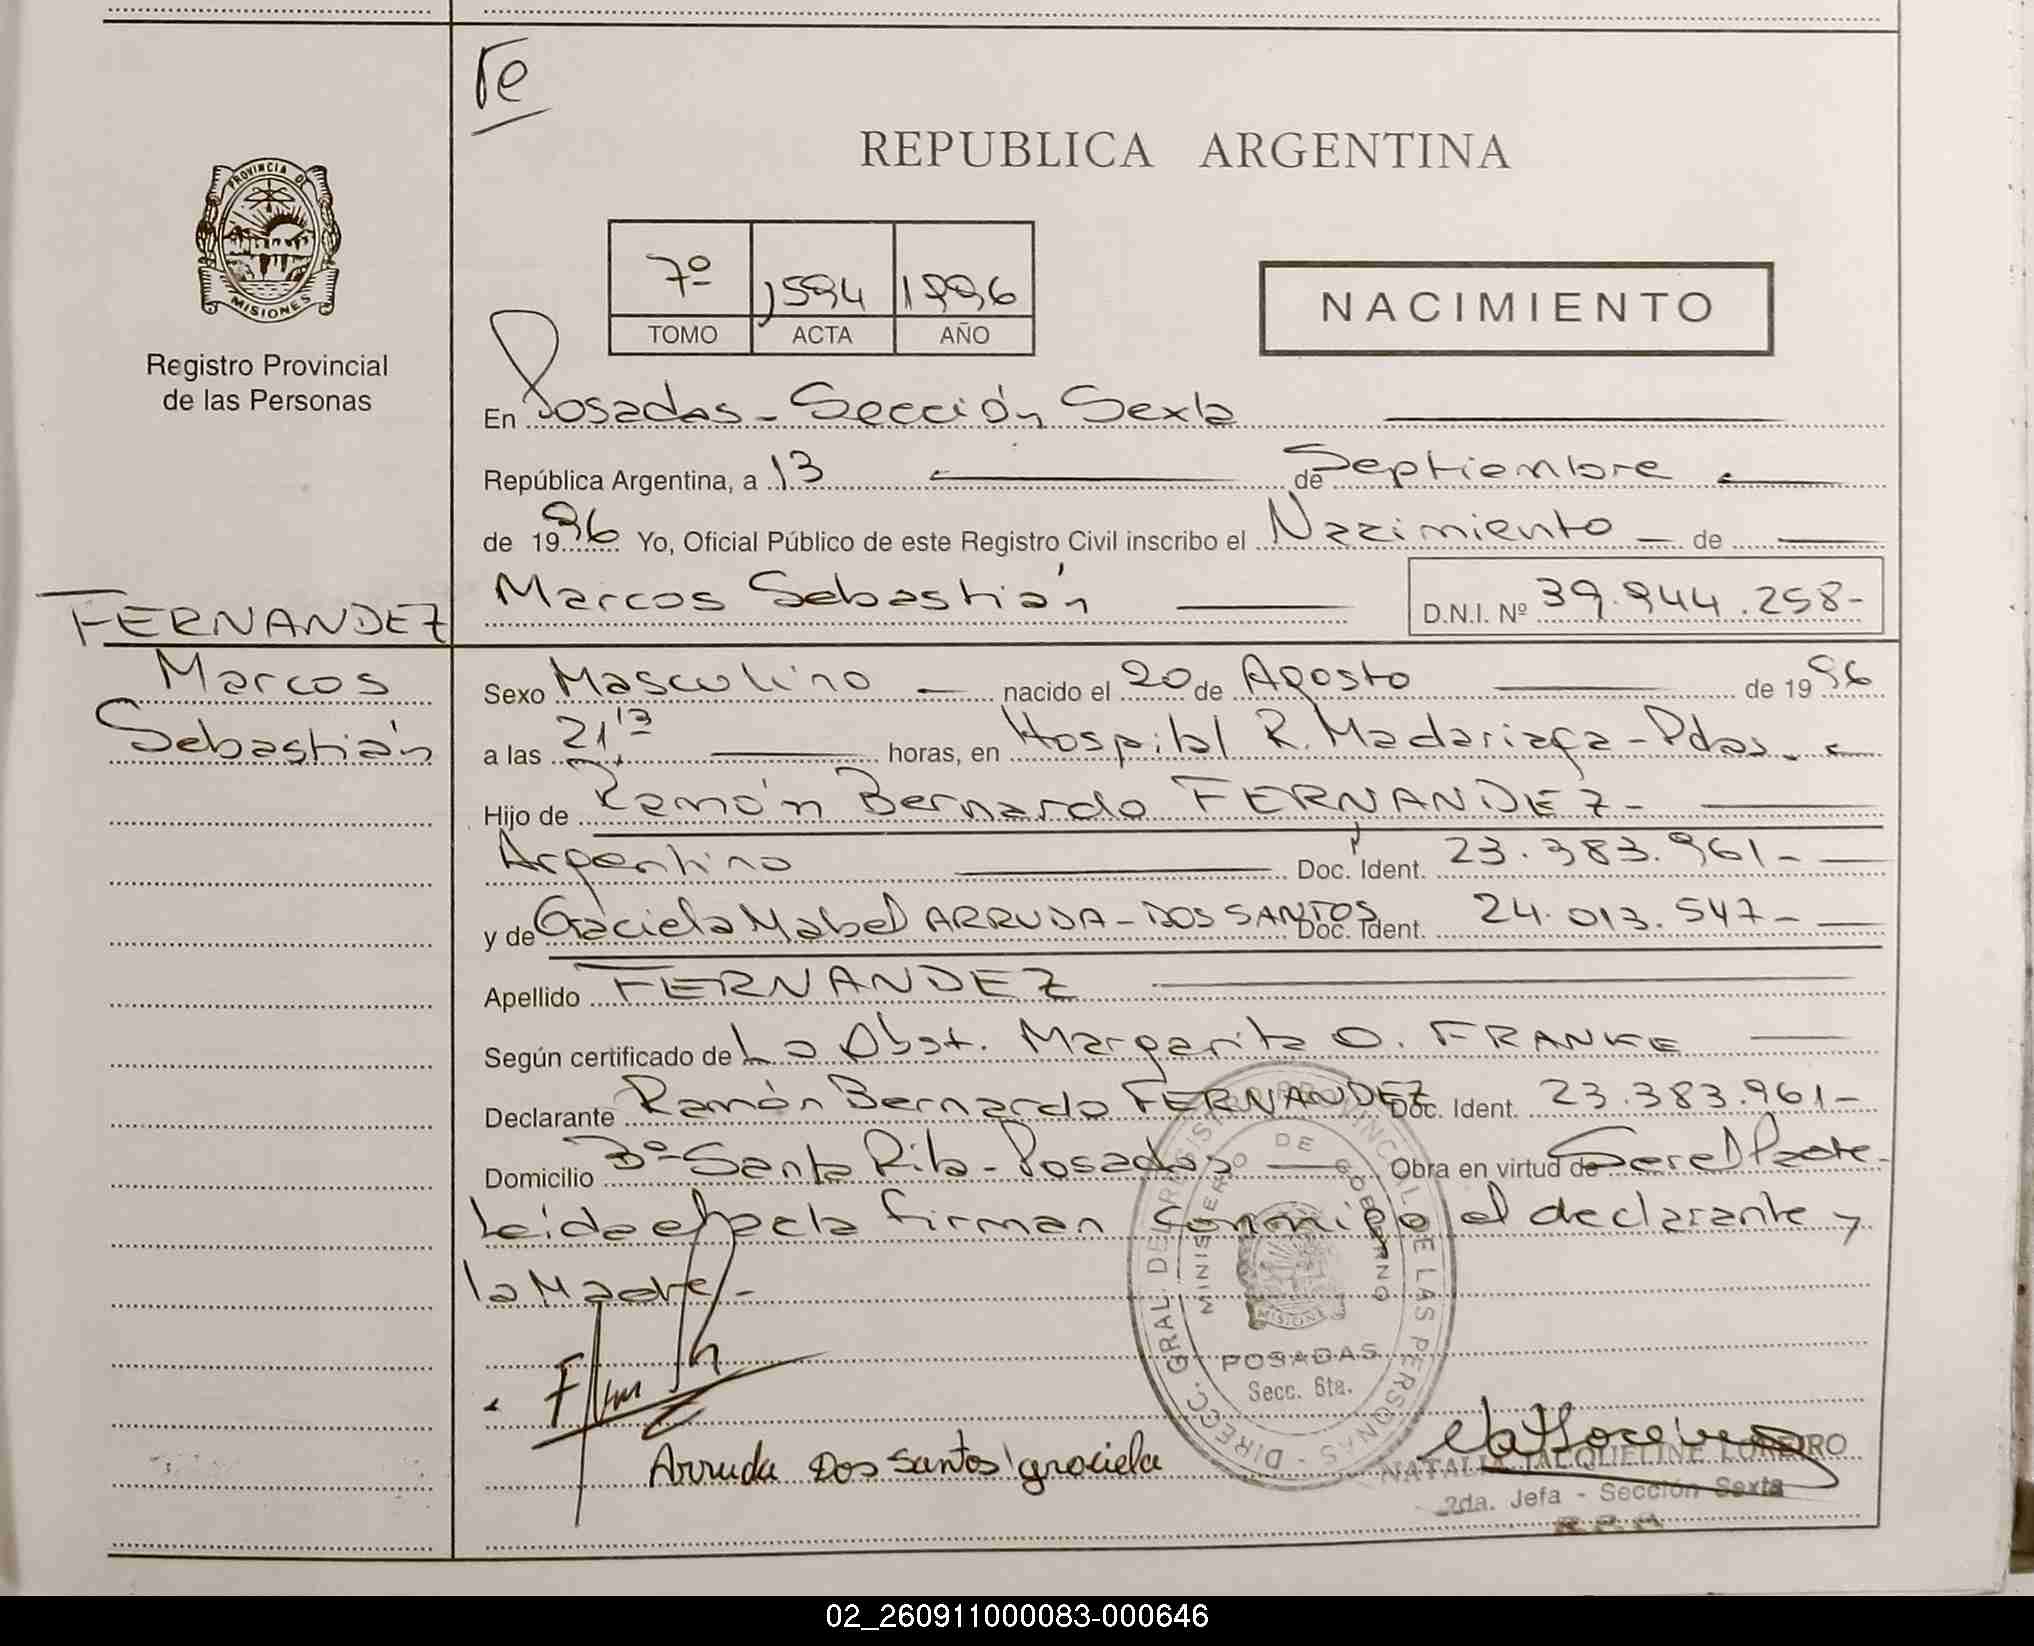 Te
PROVINCIA DE
MISIONES
Registro Provincial
de las Personas
REPUBLICA ARGENTINA
7º 1594 1996
TOMO ACTA AÑO
NACIMIENTO
En Posadas - Sección Sexta
República Argentina, a 13 de Septiembre
de 1996 Yo, Oficial Público de este Registro Civil inscribo el Nacimiento - de
Marcos Sebastián D.N.I. Nº 39.944.258-
FERNANDEZ
Marcos
Sebastián
Sexo Masculino - nacido el 20 de Agosto de 1996
a las 21,13 horas, en Hospital R. Madariaga - Pdas.
Hijo de Ramón Bernardo FERNANDEZ -
Argentino Doc. Ident. 23.383.961-
y de Graciela Mabel ARRUDA - DOS SANTOS Doc. Ident. 24.013.547-
Apellido FERNANDEZ
Según certificado de La Obst. Margarita O. FRANKE
Declarante Ramón Bernardo FERNANDEZ Doc. Ident. 23.383.961-
Domicilio Bº Santa Rita - Posadas - Obra en virtud de Ser el Padre -
Leída el Acta firman conmigo el declarante y
la Madre -
DIRECC. GRAL. DE REGISTRO PROVINCIAL DE LAS PERSONAS -
MINISTERIO DE GOBIERNO
MISIONES
POSADAS
Secc. 6ta.
Arruda Dos Santos graciela
NATALIA JACQUELINE LOREIRO
2da. Jefa - Sección Sexta
R.P.M
02_260911000083-000646